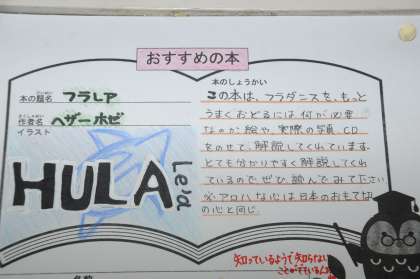 おすすめの本
本の題名 フラレア
作者名 ヘザーホゼ
イラスト
HULA
Le'a
本のしょうかい
この本は、フラダンスを、もっと
うまくおどるには何が必要
なのか絵や、実際の写真、CD
をのせて、解説してくれています。
とても分かりやすく解説してくれ
ているのでぜひ読んでみて下さい
アロハな心は日本のおもてなし
の心と同じ。
知っているようで知らない